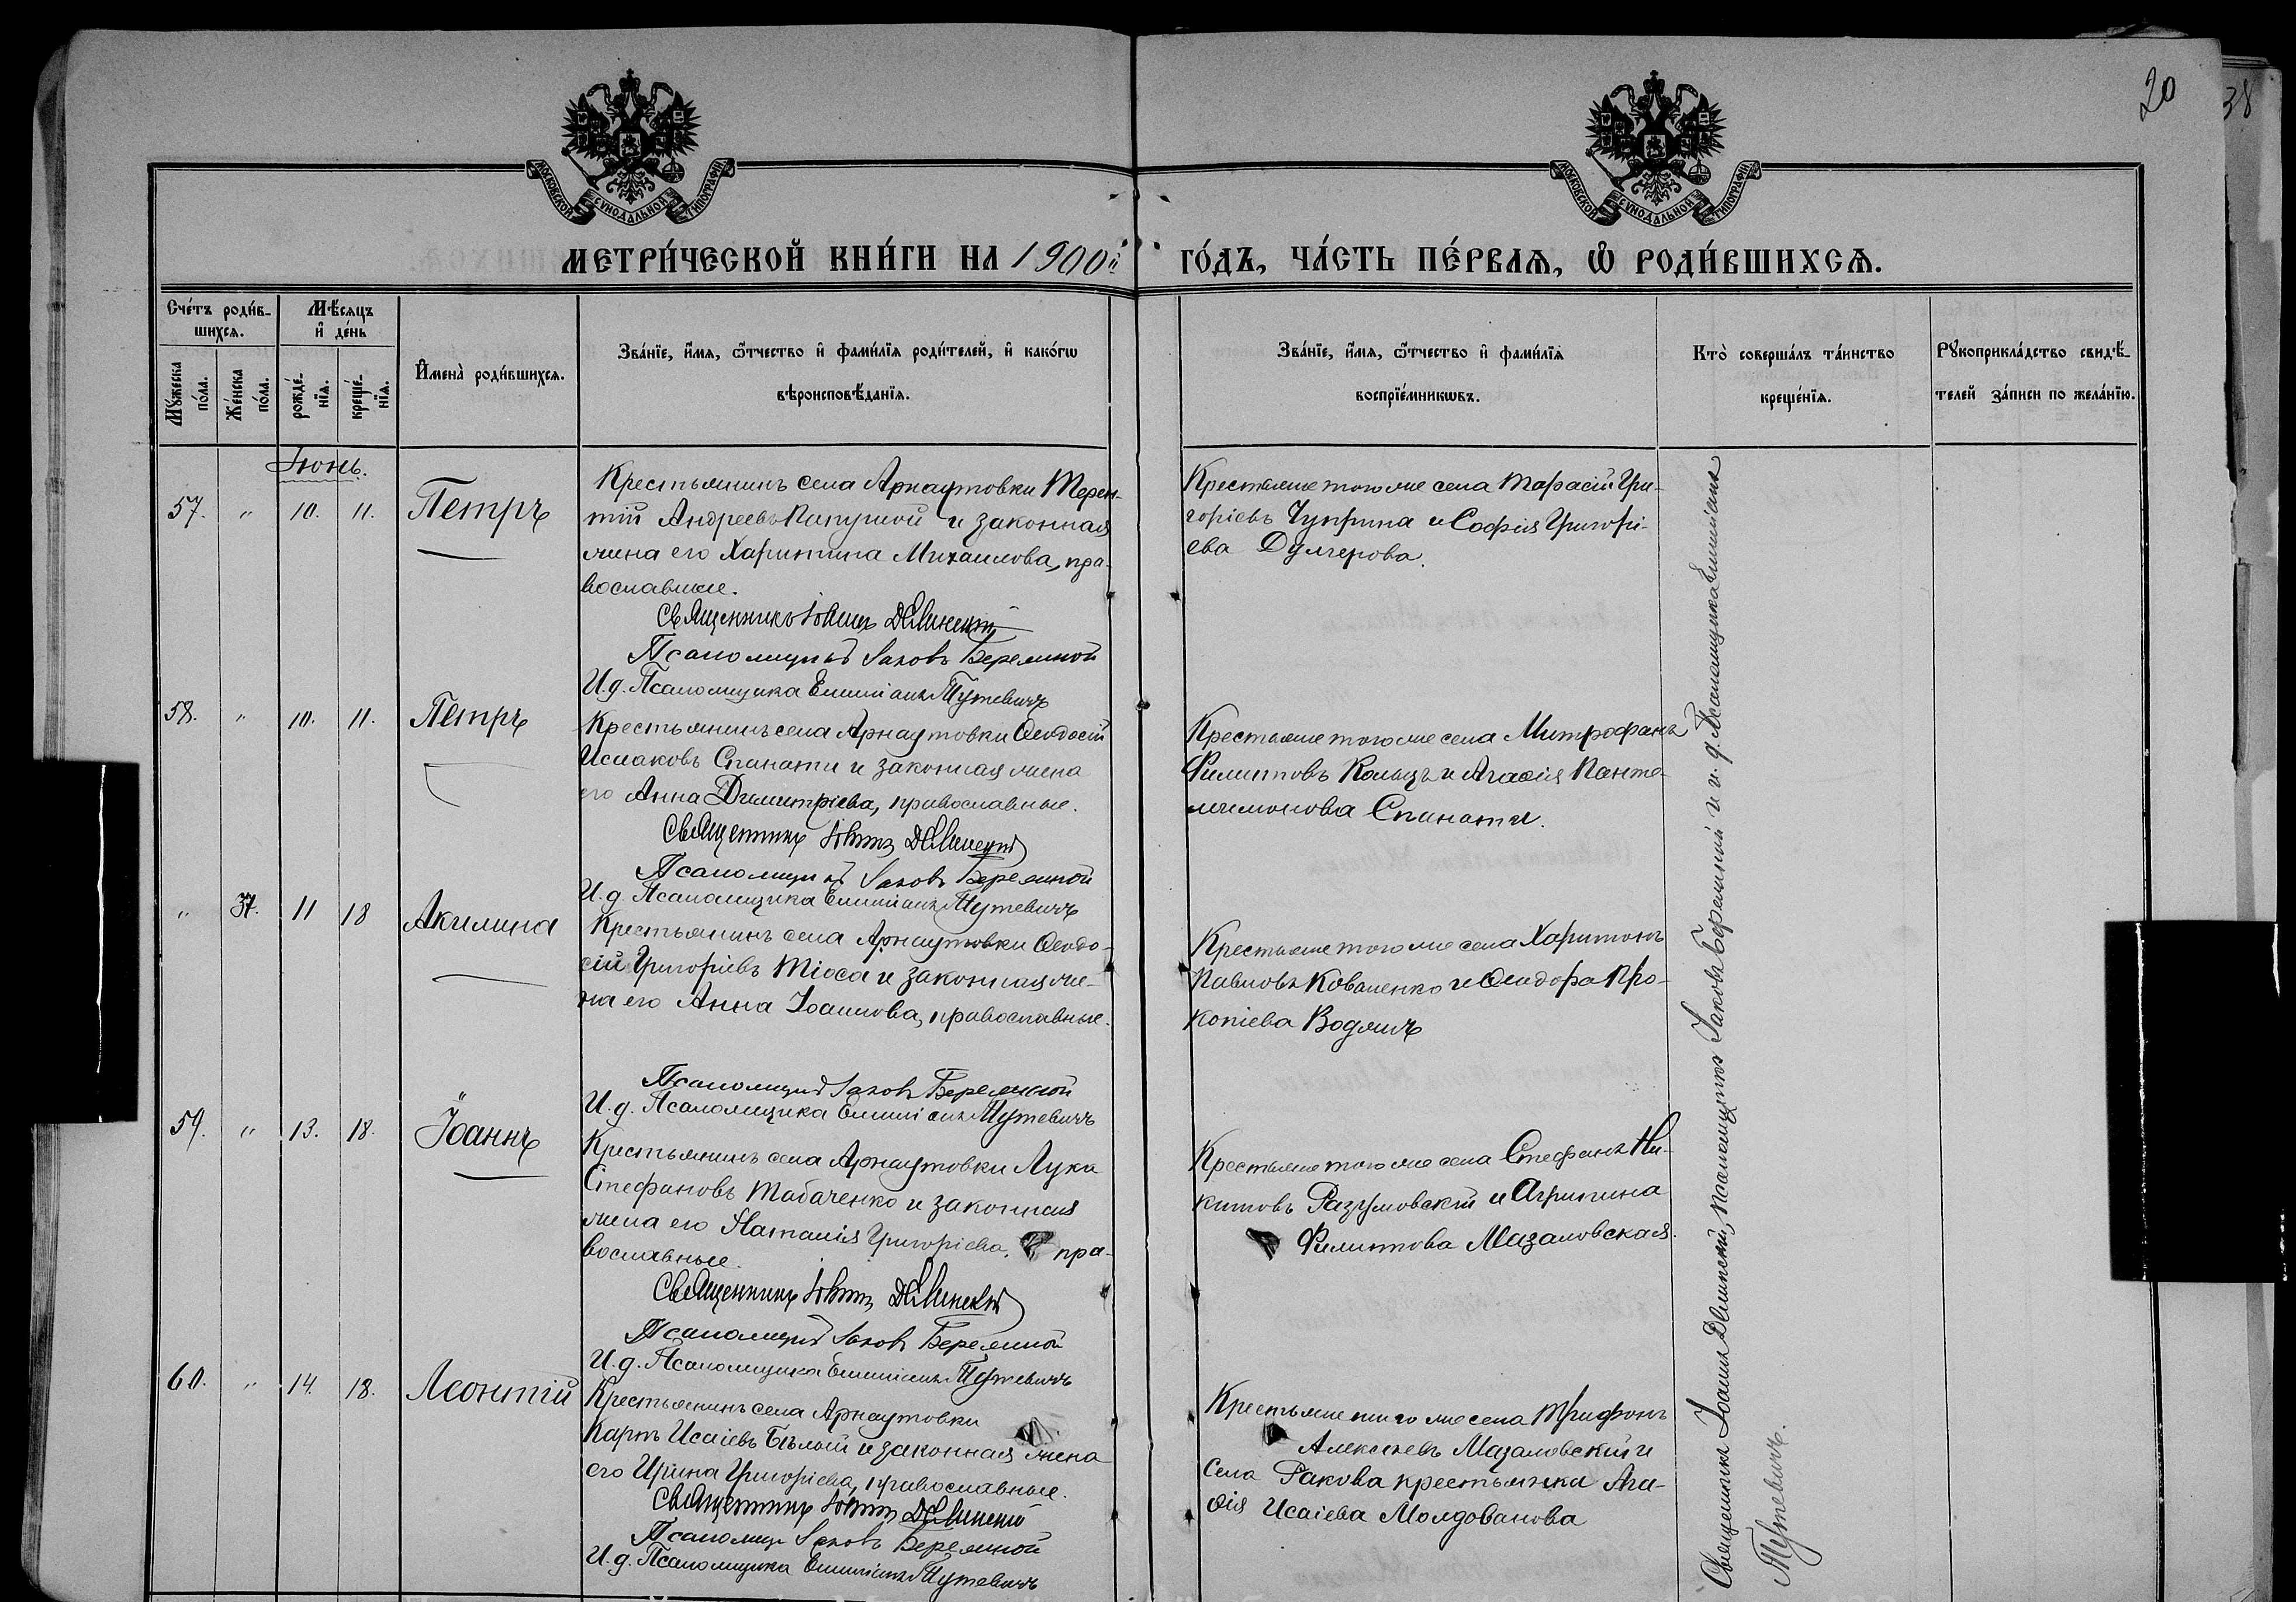 20
38
МОСКОВСКОЙ СѴНОДАЛЬНОЙ ТИПОГРАФІИ
МОСКОВСКОЙ СѴНОДАЛЬНОЙ ТИПОГРАФІИ
МЕТРИ́ЧЕСКОЙ КНИ́ГИ НА 1900й
ГО́ДЪ, ЧА́СТЬ ПЕ́РВАѦ, Ѡ҆ РОДИ́ВШИХСѦ.
Сче́тъ роди́в-
шихсѧ.
Мѣ́сяцъ
и҆ де́нь
Мꙋ́жеска по́ла.
Же́нска по́ла.
рожде́-нїѧ.
креще́-нїѧ.
И҆мена̀ роди́вшихсѧ.
Зва́нїе, и҆́мѧ, ѻ҆́тчество и҆ фами́лїѧ роди́телей, и҆ како́гѡ
вѣроисповѣ́данїѧ.
Зва́нїе, и҆́мѧ, ѻ҆́тчество и҆ фами́лїѧ
воспрїе́мникѡвъ.
Кто̀ соверша́лъ та́инство
креще́нїѧ.
Рꙋкоприкла́дство свидѣ́-
телей за́писи по жела́нїю.
Іюнь.
57. " 10. 11. Петръ
Крестьянинъ села Арнаутовки Терен-
тій Андреевъ Папушой и законная
жена его Харитина Михаилова, пра-
вославные.
Священникъ Іоаннъ Делинскій
Псаломщикъ Іаковъ Бережной
И. д. Псаломщика Емиліанъ Тутевичъ
Крестьяне того же села Тарасій Гри-
горіевъ Чуприна и Софія Григорі-
ева Дулгерова.
58. " 10. 11. Петръ
Крестьянинъ села Арнаутовки Ѳеодосій
Исааковъ Спанати и законная жена
его Анна Димитріева, православные.
Священникъ Іоаннъ Делинскій
Псаломщикъ Іаковъ Бережной
И. д. Псаломщика Емиліанъ Тутевичъ
Крестьяне того же села Митрофанъ
Филипповъ Кольцъ и Агаѳія Панте-
леимонова Спанати.
" 37. 11 18 Акилина
Крестьянинъ села Арнаутовки Ѳеодо-
сій Григоріевъ Тіоса и законная же-
на его Анна Іоаннова, православные.
Псаломщикъ Іаковъ Бережной
И. д. Псаломщика Емиліанъ Тутевичъ
Крестьяне того же села Харитонъ
Павловъ Коваленко и Ѳеодора Про-
копіева Водяич
59. " 13. 18. Іоаннъ
Крестьянинъ села Арнаутовки Лука
Стефановъ Табаченко и законная
жена его Наталія Григоріева, пра-
вославные.
Священникъ Іоаннъ Делинскій
Псаломщикъ Іаковъ Бережной
И. д. Псаломщика Емиліанъ Тутевичъ
Крестьяне того же села Стефанъ Ни-
китовъ Разумовскій и Агрипина
Филиппова Мазаловская.
60. " 14. 18. Леонтій
Крестьянинъ села Арнаутовки
Карпъ Исаіевъ Бѣлой и законная жена
его Ирина Григоріева, православные.
Священникъ Іоаннъ Делинскій
Псаломщ Іаковъ Бережной
И. д. Псаломщика Емиліанъ Тутевичъ
Крестьяне того же села Трифонъ
Алексѣевъ Мазаловскій и
села Ракова крестьянка Ага-
ѳія Исаіева Молдованова
Священникъ Іоаннъ Делинскій, псаломщикъ Іаковъ Бережный и и. д. Псаломщика Емиліанъ
Тутевичъ.